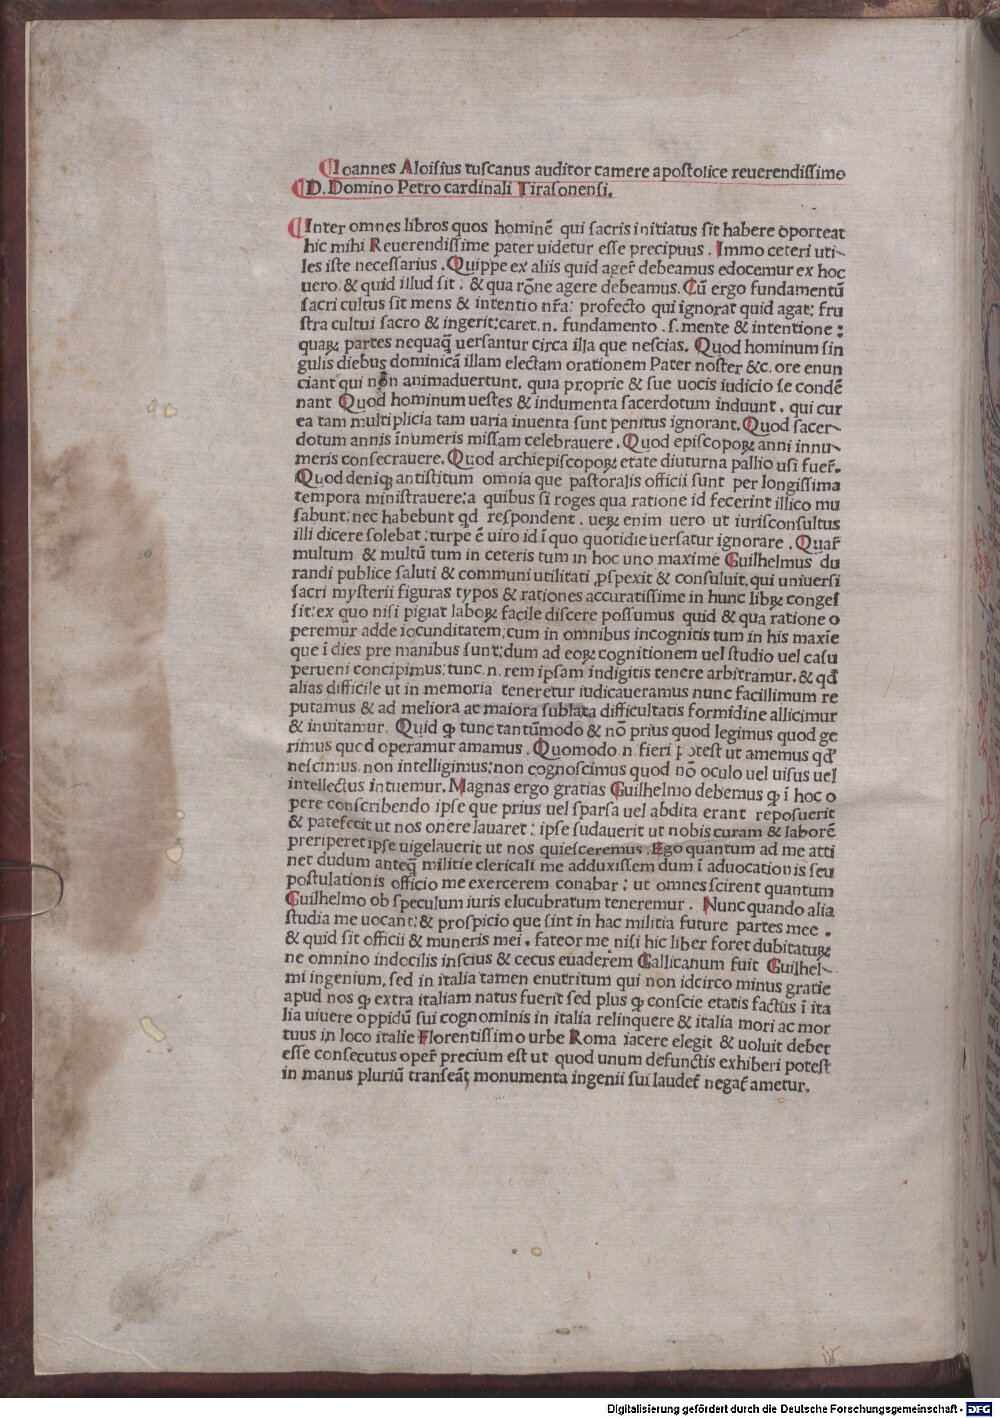 ¶Ioannes Aloisius tuscanus auditor camere apostolice reuerendissimo
¶D. Domino Petro cardinali Tirasonensi.
¶Inter omnes libros quos hominẽ qui sacris initiatus sit habere oporteat
hic mihi Reuerendissime pater uidetur esse precipuus. Immo ceteri uti-
les iste necessarius. Quippe ex aliis quid ager̃ debeamus edocemur ex hoc
uero: & quid illud sit: & qua rõne agere debeamus. Cũ ergo fundamentũ
sacri cultus sit mens & intentio nr̃a: profecto qui ignorat quid agat: fru
stra cultui sacro & ingerit: caret .n. fundamento .s. mente & intentione:
quaꝝ partes nequaq̃ uersantur circa illa que nescias. Quod hominum sin
gulis diebus dominicã illam electam orationem Pater noster &c. ore enun
ciant qui non animaduertunt. quia proprie & sue uocis iudicio se condẽ
nant Quod hominum uestes & indumenta sacerdotum induunt. qui cur
ea tam multiplicia tam uaria inuenta sunt penitus ignorant. Quod sacer-
dotum annis ĩnumeris missam celebrauere. Quod episcopoꝝ anni innu-
meris consecrauere. Quod archiepiscopoꝝ etate diuturna pallio usi fuer̃.
Quod deniq; antistitum omnia que pastoralis officii sunt per longissima
tempora ministrauere: a quibus si roges qua ratione id fecerint illico mu
sabunt: nec habebunt qd respondent. ueꝝ enim uero ut iurisconsultus
illi dicere solebat: turpe ẽ uiro id ĩ quo quotidie uersatur ignorare. Quar̃
multum & multũ tum in ceteris tum in hoc uno maxime Guilhelmus du
randi publice saluti & communi utilitati ꝓspexit & consuluit. qui uniuersi
sacri mysterii figuras typos & rationes accuratissime in hunc libꝝ conges
sit: ex quo nisi pigiat laboꝝ facile discere possumus quid & qua ratione o
peremur adde iocunditatem. cum in omnibus incognitis tum in his maxĩe
que ĩ dies pre manibus sunt: dum ad eoꝝ cognitionem uel studio uel casu
perueni concipimus: tunc .n. rem ipsam indigitis tenere arbitramur. & qđ
alias difficile ut in memoria teneretur iudicaueramus nunc facillimum re
putamus & ad meliora ac maiora sublata difficultatis formidine allicimur
& inuitamur. Quid ꝙ tunc tantũmodo & nõ prius quod legimus quod ge
rimus quod operamur amamus. Quomodo .n. fieri potest ut amemus qđ
nescimus. non intelligimus: non cognoscimus quod nõ oculo uel uisus uel
intellectus intuemur. Magnas ergo gratias Guilhelmo debemus ꝙ ĩ hoc o
pere conscribendo ipse que prius uel sparsa uel abdita erant reposuerit
& patefecit ut nos onere lauaret: ipse sudauerit ut nobis curam & laborẽ
preriperet ipse uigelauerit ut nos quiesceremus. Ego quantum ad me atti
net dudum anteq̃ militie clericali me adduxissem dum ĩ aduocationis seu
postulationis officio me exercerem conabar: ut omnes scirent quantum
Guilhelmo ob speculum iuris elucubratum teneremur. Nunc quando alia
studia me uocant: & prospicio que sint in hac militia future partes mee.
& quid sit officii & muneris mei. fateor me nisi hic liber foret dubitatuꝝ
ne omnino indocilis inscius & cecus euaderem Gallicanum fuit Guilhel-
mi ingenium. sed in italia tamen enutritum qui non idcirco minus gratie
apud nos ꝙ extra italiam natus fuerit sed plus ꝙ conscie etatis factus ĩ ita
lia uiuere oppidũ sui cognominis in italia relinquere & italia mori ac mor
tuus in loco italie Florentissimo urbe Roma iacere elegit & uoluit debet
esse consecutus oper̃ precium est ut quod unum defunctis exhiberi potest
in manus pluriũ transeãt monumenta ingenii sui laudet̃ negat̃ ametur.
Digitalisierung gefördert durch die Deutsche Forschungsgemeinschaft - DFG